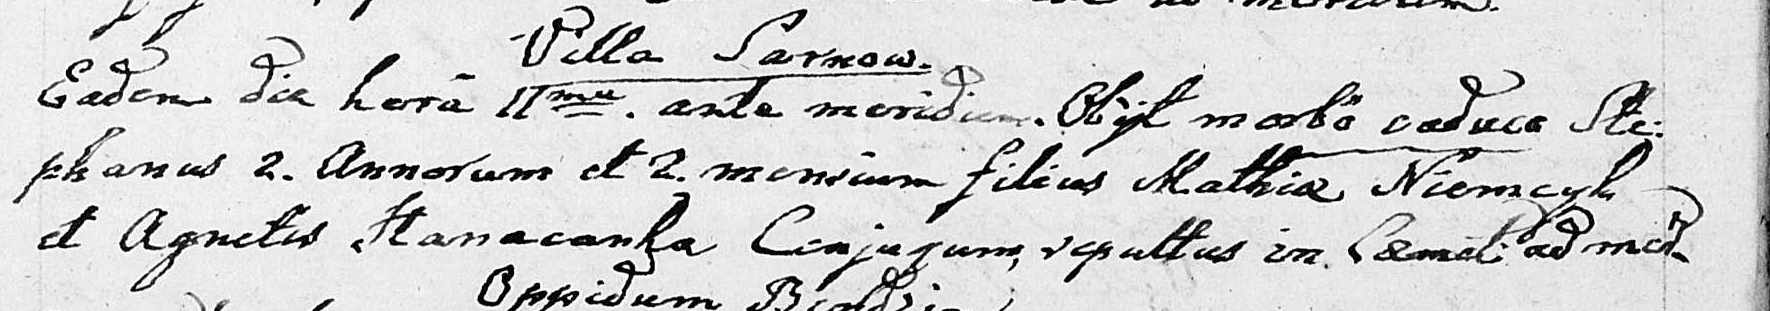 Villa Sarnow.
Eadem die hora 11ma. ante meridiem. Obijt morbo caduco Ste:
phanus 2. Annorum et 2. mensium filius Mathiæ Niemcyk
et Agnetis Conjugum, sepultus in Cæmet: ad med.
Oppidum